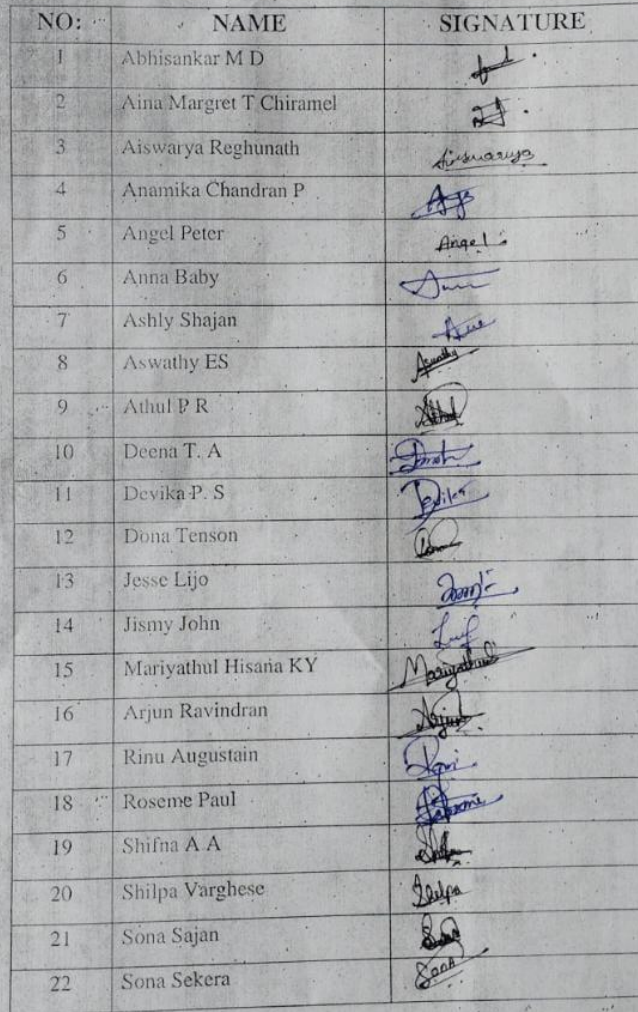 NO: NAME SIGNATURE
1 Abhisankar M D
2 Aina Margret T Chiramel
3 Aiswarya Reghunath Aiswarya
4 Anamika Chandran P
5 Angel Peter Angel
6 Anna Baby
7 Ashly Shajan
8 Aswathy ES Aswathy
9 Athul P R Athul
10 Deena T. A
11 Devika P. S Devika
12 Dona Tenson
13 Jesse Lijo
14 Jismy John
15 Mariyathul Hisana KY Mariyathul
16 Arjun Ravindran Arjun
17 Rinu Augustain
18 Roseme Paul
19 Shifna A A
20 Shilpa Varghese Shilpa
21 Sona Sajan
22 Sona Sekera Sona